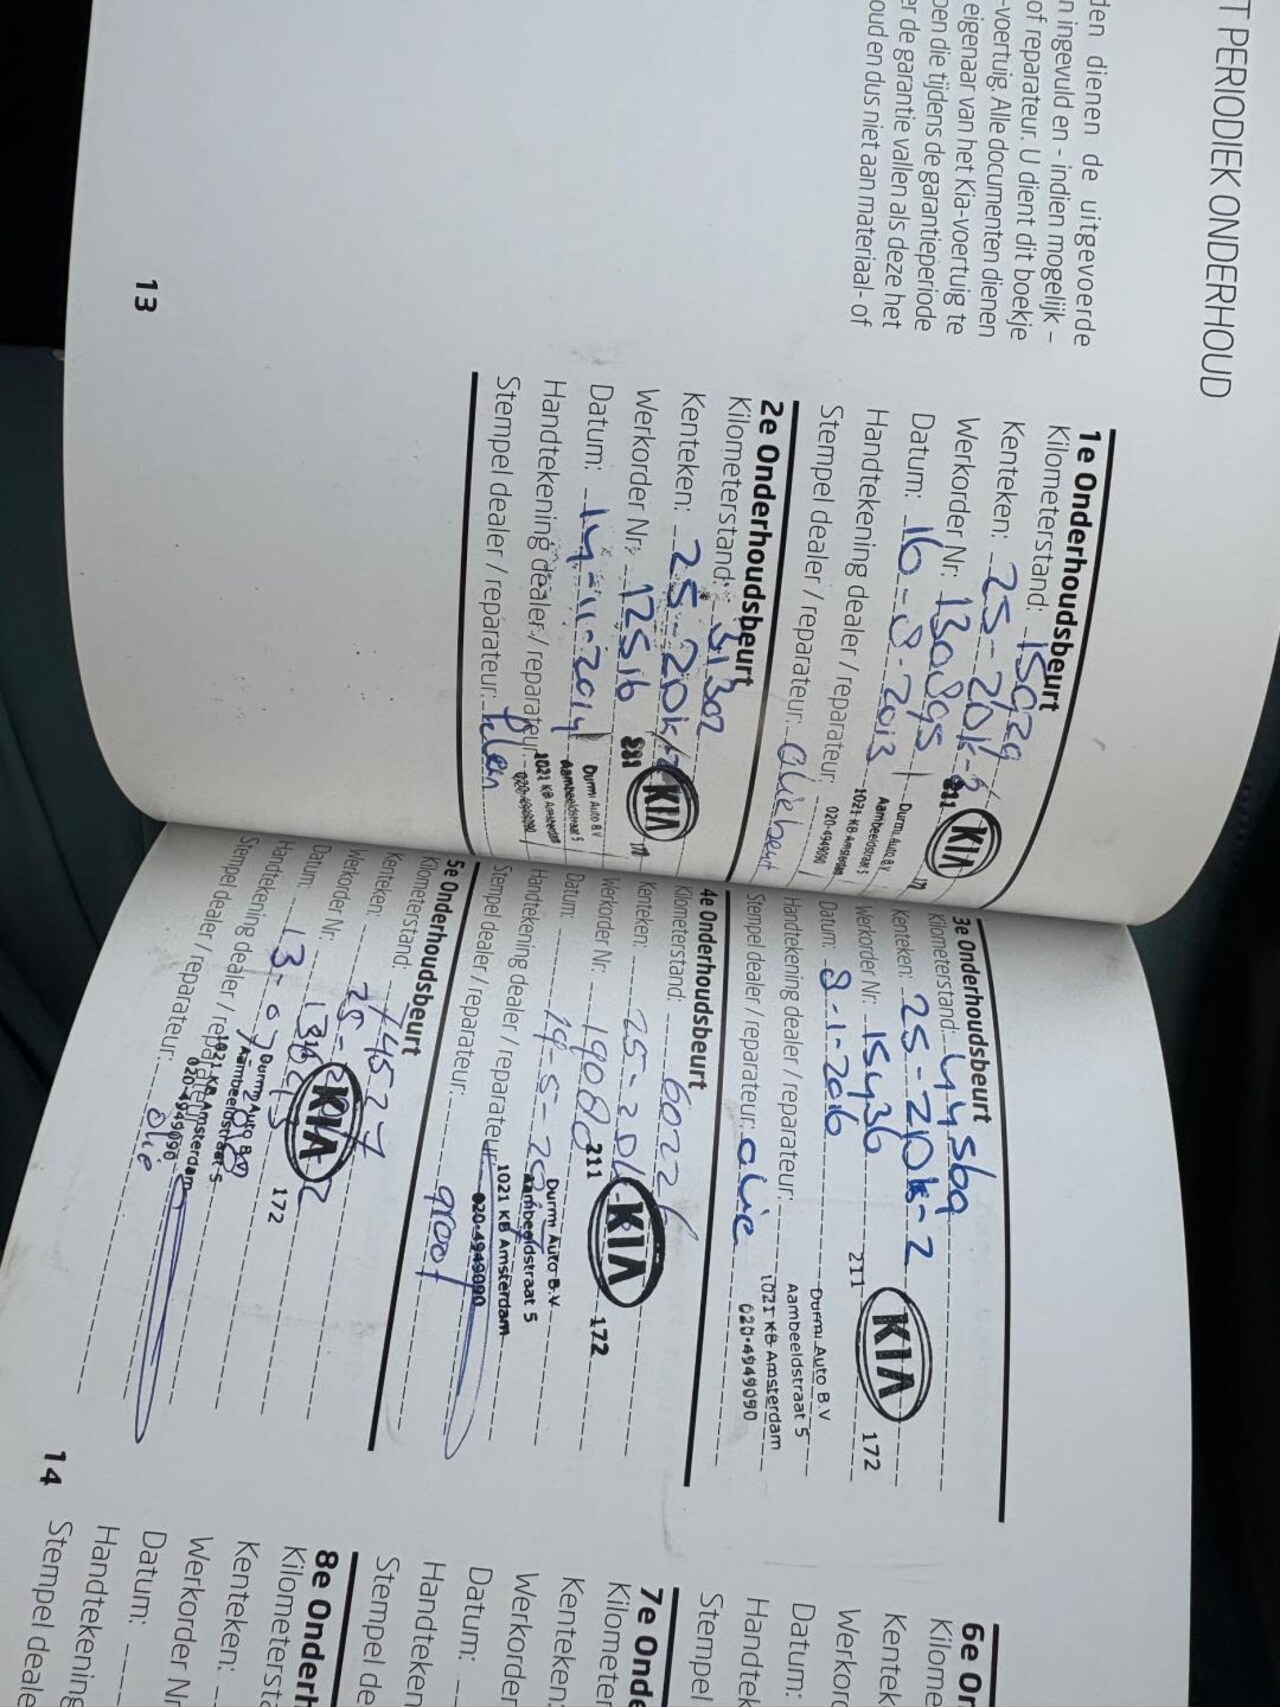 T PERIODIEK ONDERHOUD
den dienen de uitgevoerde
n ingevuld en - indien mogelijk -
of reparateur. U dient dit boekje
-voertuig. Alle documenten dienen
eigenaar van het Kia-voertuig te
pen die tijdens de garantieperiode
er de garantie vallen als deze het
oud en dus niet aan materiaal- of
13
1e Onderhoudsbeurt
Kilometerstand: 15929
Kenteken: 25-ZDK-2
Werkorder Nr: 1308995
Datum: 16-8-2013
Handtekening dealer / reparateur:
Stempel dealer / reparateur:
211 KIA 172
Durmi Auto B.V
Aambeeldstraat 5
1021 KB Amsterdam
020-4949090
2e Onderhoudsbeurt
Kilometerstand: 31302
Kenteken: 25-ZDK-2
Werkorder Nr: 12516
Datum: 14-11-2014
Handtekening dealer / reparateur:
Stempel dealer / reparateur:
KIA
Durmi Auto B.V
Aambeeldstraat 5
1021 KB Amsterdam
020-4949090
3e Onderhoudsbeurt
Kilometerstand: 44569
Kenteken: 25-ZDK-2
Werkorder Nr: 15436
Datum: 8-1-2016
Handtekening dealer / reparateur:
Stempel dealer / reparateur:
211 KIA 172
Durmi Auto B.V
Aambeeldstraat 5
1021 KB Amsterdam
020-4949090
4e Onderhoudsbeurt
Kilometerstand: 60226
Kenteken: 25-ZDK
Werkorder Nr:
Datum: 19-5-
Handtekening dealer / reparateur:
Stempel dealer / reparateur: groot
211 KIA 172
Durmi Auto B.V
Aambeeldstraat 5
1021 KB Amsterdam
020-4949090
5e Onderhoudsbeurt
Kilometerstand: 74527
Kenteken: 25-
Werkorder Nr:
Datum: 13-07
Handtekening dealer / reparateur:
Stempel dealer / reparateur:
KIA 172
Durmi Auto B.V
Aambeeldstraat 5
1021 KB Amsterdam
020-4949090
14
6e On
Kilome
Kentek
Werkor
Datum:
Handtek
Stempel
7e Onde
Kilometer
Kenteken:
Werkorder
Datum:
Handteken
Stempel de
8e Onderh
Kilometersta
Kenteken:
Werkorder Nr
Datum:
Handtekening
Stempel deale